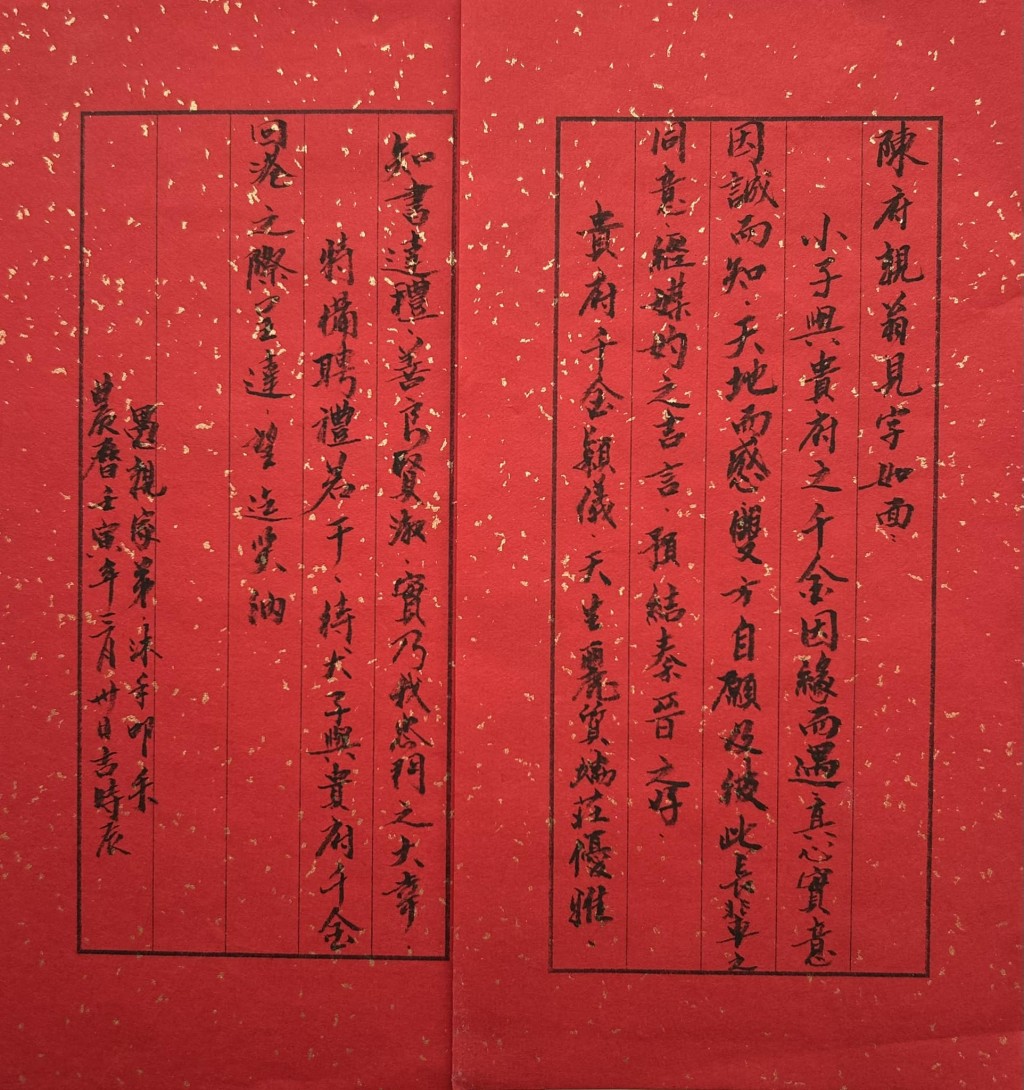 陳府親翁見字如面、
小子與貴府之千金因緣而遇真心實意
因誠而知、天地而感雙方自願及彼此長輩之
同意、經媒妁之言、預結秦晉之好、
貴府千金穎儀、天生麗質端莊優雅、
知書達禮、善良賢淑、實乃我忝門之大幸、
特備聘禮若干、待犬子與貴府千金
回港之際呈達、望迄笑納
愚親家弟、沐手叩禾
農曆壬寅年三月卅日吉時辰